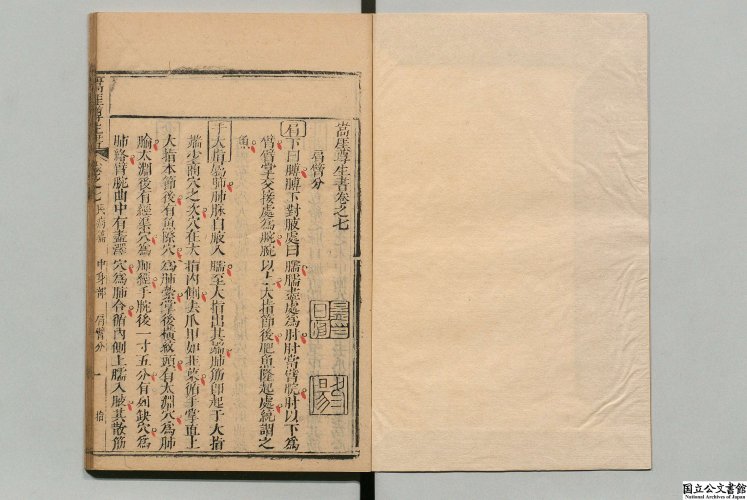 嵩厓尊生書卷之七
肩臂分
肩下曰膊膊下對腋處曰臑臑盡處爲肘肘當臂脘肘以下爲
臂臂掌交接處爲腕腕以上大指節後肥魚隆起處統謂之
魚
手大指爲肺肺脉自腋入臑至大指出其端肺筋卽起于大指
端少商穴之次穴在大指內側去爪甲如韭葉循手掌直上
大指本節後有魚際穴爲肺滎掌後橫紋頭有太淵穴爲肺
腧太淵後有經渠穴爲肺經于腕後一寸五分有列缺穴爲
肺絡臂腕曲中有尺澤穴爲肺合循內側上臑入腋其散筋
卷之七
中身部
肩臂分
一
国立公文書館
National Archives of Japan